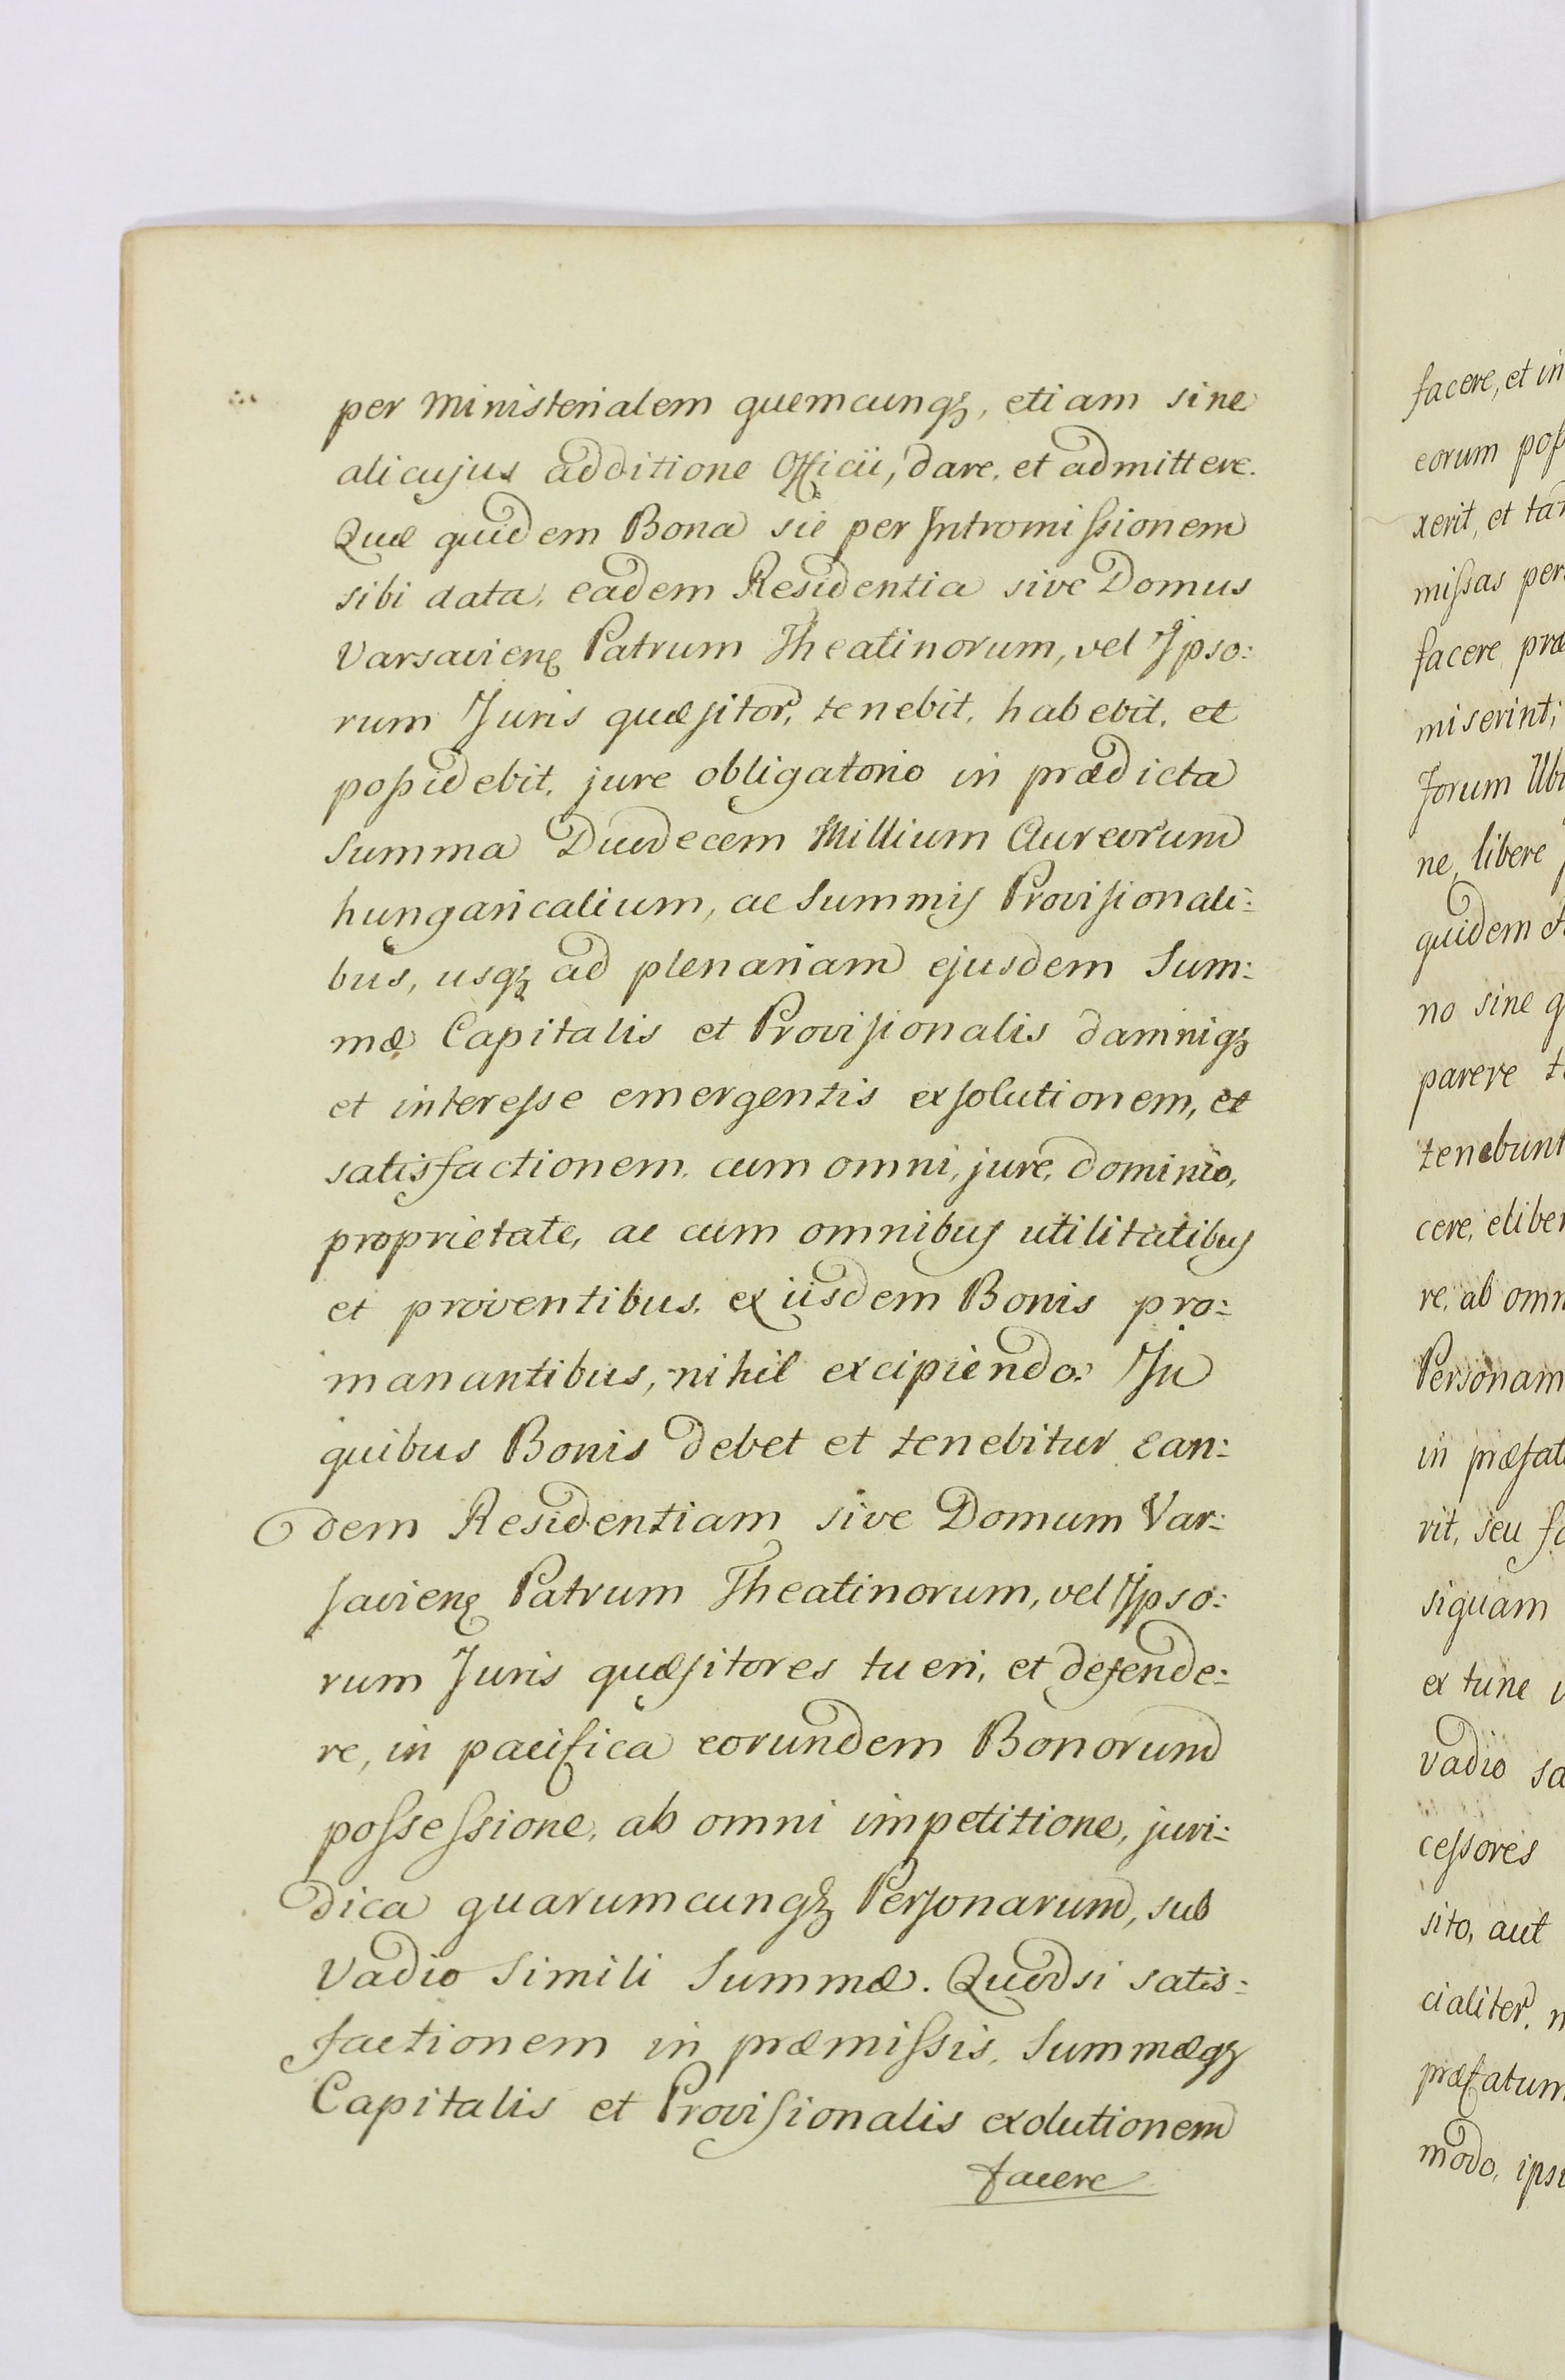 per Ministerialem quemcunqꝫ, etiam sine
alicujus additione Officii, dare, et admittere.
Quæ quidem Bona sic per Intromissionem
sibi data, eadem Residentia sive Domus
Varsavienȩ Patrum Theatinorum, vel Ipso:
rum Juris quæsitor, tenebit, habebit, et
possidebit, jure obligatorio in prædicta
Summa Duodecem Millium Aureorum
hungaricalium, ac Summis Provisionali:
bus, usqꝫ ad plenariam ejusdem Sum:
mæ Capitalis et Provisionalis damniqꝫ
et interesse emergentis exsolutionem, et
satisfactionem, cum omni, jure, dominio,
proprietate, ac cum omnibus utilitatibus
et proventibus, ex iisdem Bonis pro:
manantibus, nihil excipiendo: In
quibus Bonis debet et tenebitur ean:
dem Residentiam sive Domum Var:
savienȩ Patrum Theatinorum, vel Ipso:
rum Juris quæsitores tueri, et defende:
re, in pacifica eorundem Bonorum
possessione, ab omni impetitione, juri:
dica quarumcunqꝫ Personarum, sub
Vadio Simili Summæ. Quodsi satis:
factionem in præmissis, Summæqꝫ
Capitalis et Provisionalis exolutionem
facere
facere, et in
eorum poss
xerit, et tan
missas per
facere præ
miserint;
forum Ubi
ne, libere
quidem et
no sine q
parere t
tenebunt
cere, eliber
re, ab omn
Personam
in præfat
rit, seu fa
siquam
ex tunc
Vadio sa
cessores
sito, aut
cialiter, n
præfatum
modo, ips